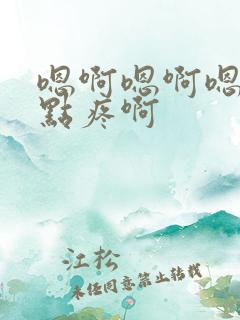 嗯啊嗯啊嗯
點疼啊
江松
未经同意禁止转载